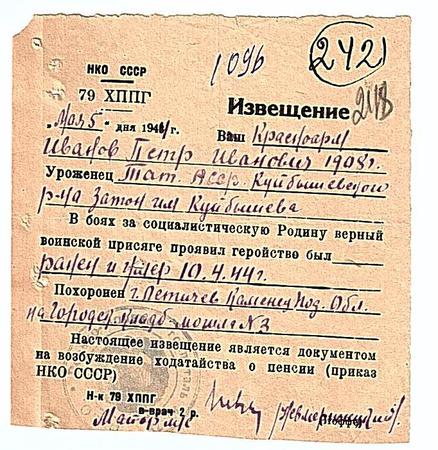 1096
242
2118
НКО СССР
79 ХППГ
Извещение
"Мая 5" дня 1944 г.
Ваш Красноарм
Иванов Петр Иванович 1908 г.
Уроженец Тат. Асср. Куйбышевского
р-на Затон им Куйбышева
В боях за социалистическую Родину верный
воинской присяге проявил геройство был
ранен и умер 10.4.44 г.
Похоронен г. Летичев Каменец Поз. Обл.
на Городск кладб. могила № 3
Настоящее извещение является документом
на возбуждение ходатайства о пенсии (приказ
НКО СССР)
Н-к 79 ХППГ
в-врач 2 р.
Майор м/с